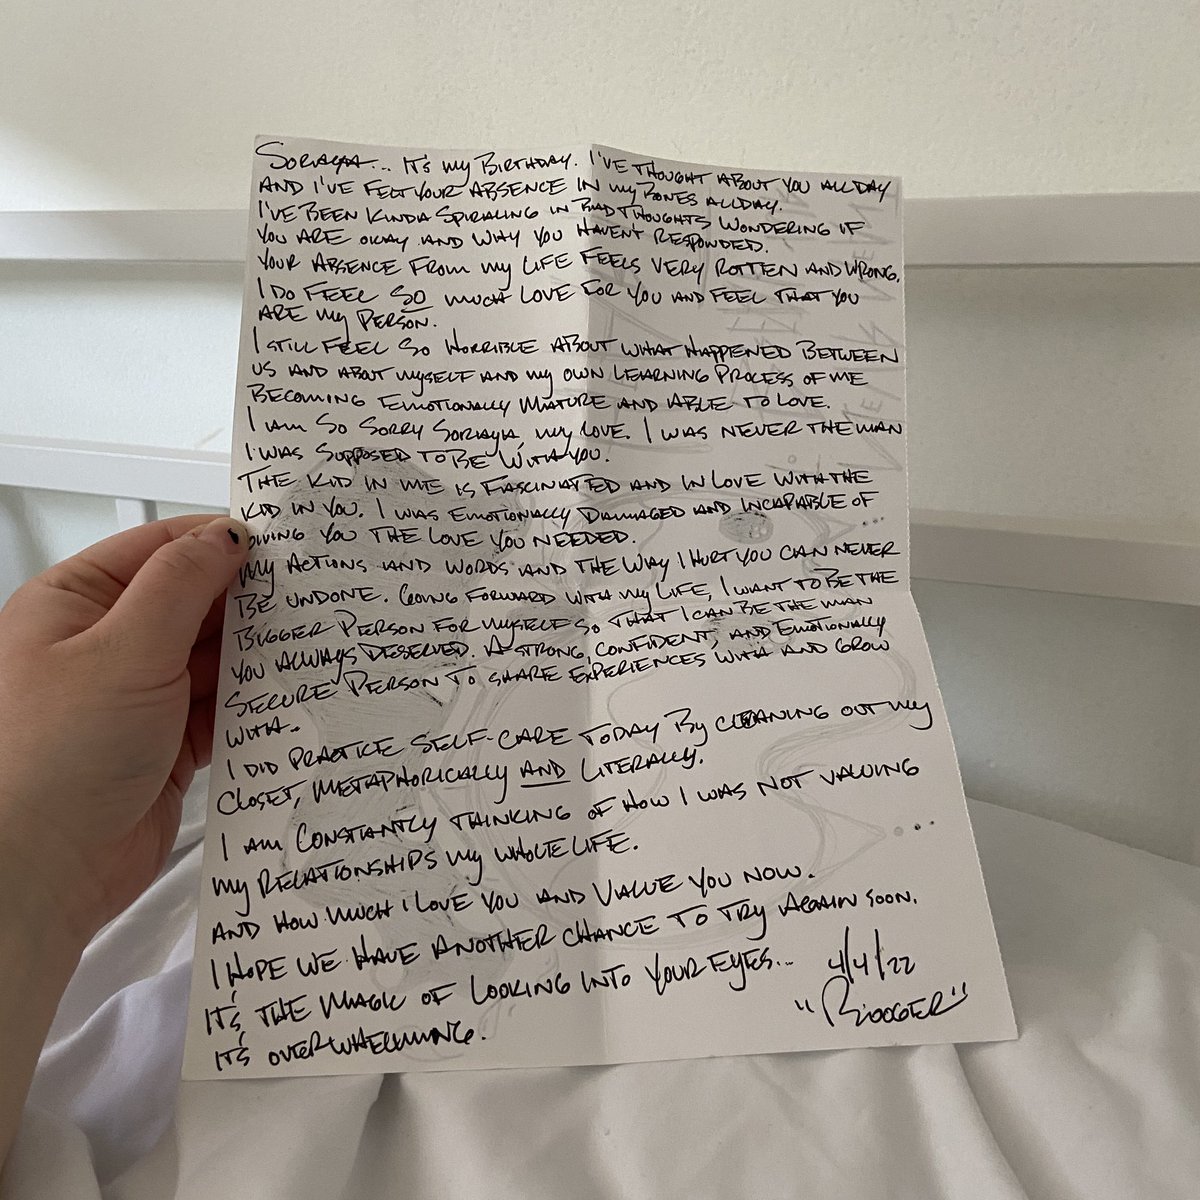 SORAYA... IT'S MY BIRTHDAY. I'VE THOUGHT ABOUT YOU ALL DAY
AND I'VE FELT YOUR ABSENCE IN MY BONES ALL DAY.
I'VE BEEN KINDA SPIRALING IN BAD THOUGHTS WONDERING IF
YOU ARE OKAY AND WHY YOU HAVEN'T RESPONDED.
YOUR ABSENCE FROM MY LIFE FEELS VERY ROTTEN AND WRONG.
I DO FEEL SO MUCH LOVE FOR YOU AND FEEL THAT YOU
ARE MY PERSON.
I STILL FEEL SO HORRIBLE ABOUT WHAT HAPPENED BETWEEN
US AND ABOUT MYSELF AND MY OWN LEARNING PROCESS OF ME
BECOMING EMOTIONALLY MATURE AND ABLE TO LOVE.
I AM SO SORRY SORAYA, MY LOVE. I WAS NEVER THE MAN
I WAS SUPPOSED TO BE WITH YOU.
THE KID IN ME IS FASCINATED AND IN LOVE WITH THE
KID IN YOU. I WAS EMOTIONALLY DAMAGED AND INCAPABLE OF
GIVING YOU THE LOVE YOU NEEDED.
MY ACTIONS AND WORDS AND THE WAY I HURT YOU CAN NEVER
BE UNDONE. GOING FORWARD WITH MY LIFE, I WANT TO BE THE
BIGGER PERSON FOR MYSELF SO THAT I CAN BE THE MAN
YOU ALWAYS DESERVED. A STRONG, CONFIDENT, AND EMOTIONALLY
SECURE PERSON TO SHARE EXPERIENCES WITH AND GROW
WITH..
I DID PRACTICE SELF-CARE TODAY BY CLEANING OUT MY
CLOSET, METAPHORICALLY AND LITERALLY.
I AM CONSTANTLY THINKING OF HOW I WAS NOT VALUING
MY RELATIONSHIPS MY WHOLE LIFE.
AND HOW MUCH I LOVE YOU AND VALUE YOU NOW.
I HOPE WE HAVE ANOTHER CHANCE TO TRY AGAIN SOON.
IT'S THE MAGIC OF LOOKING INTO YOUR EYES...
IT'S OVERWHELMING.
4/4/22
"BOOGER"